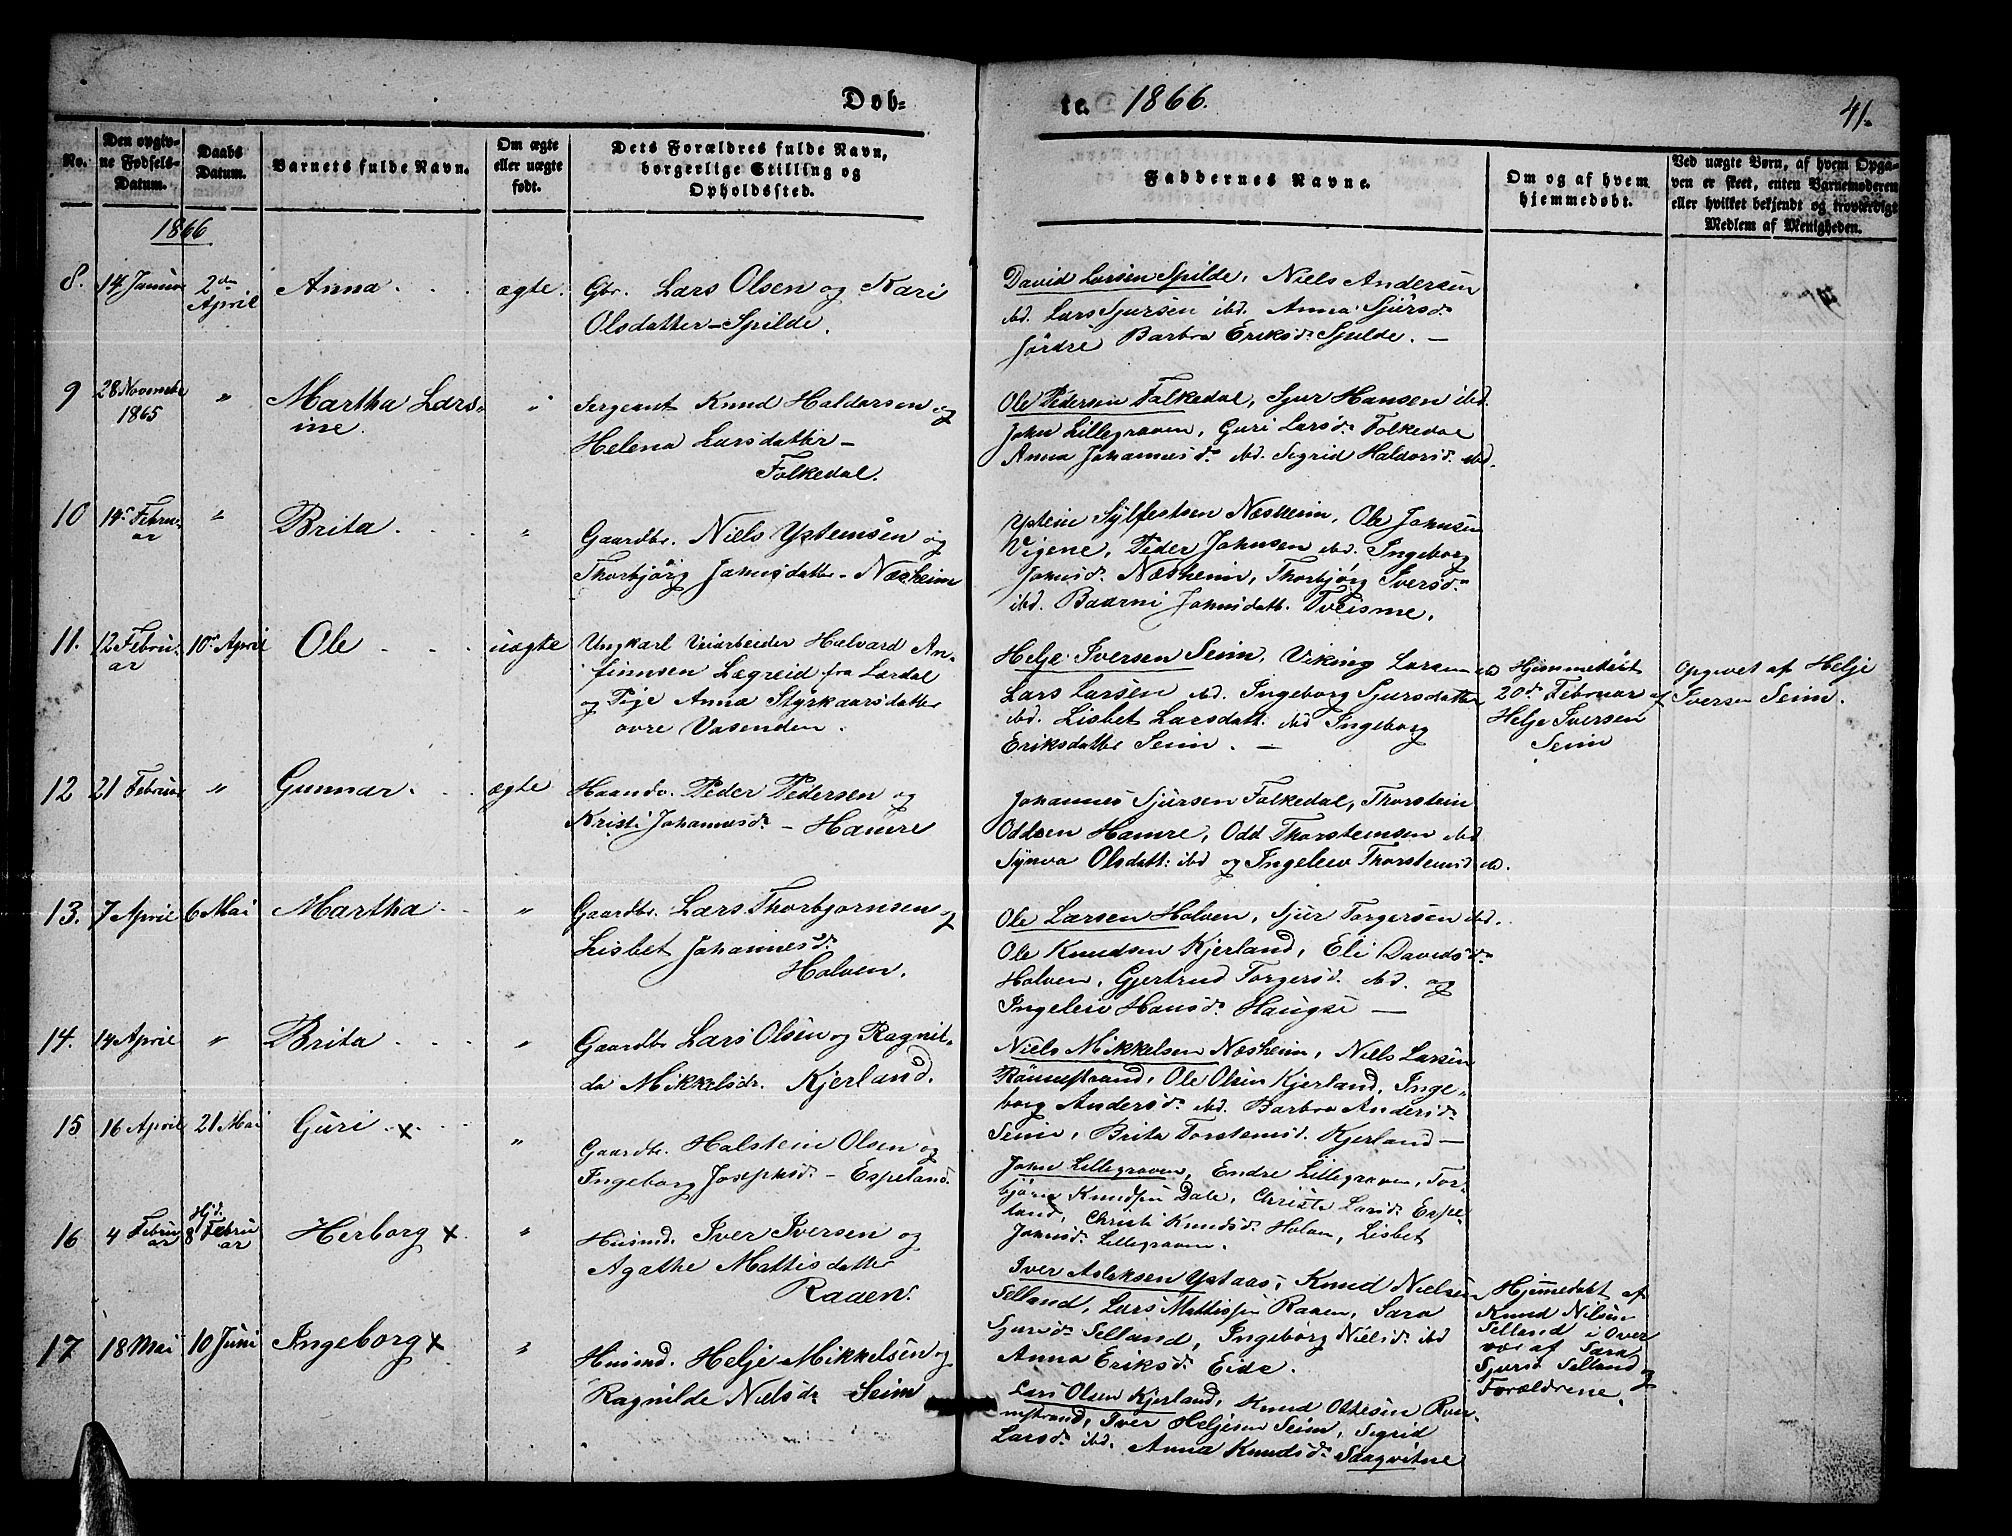 Døb=
te. 1866.
41.
No.
Den opgiv-
ne Fødsels-
Datum.
Daabs
Datum.
Barnets fulde Navn.
Om ægte
eller uægte
født.
Dets Forældres fulde Navn,
borgerlige Stilling og
Opholdssted.
Faddernes Navne.
Om og af hvem
hjemmedøbt.
Ved uægte Børn, af hvem Opga-
ven er skeet, enten Barnemoderen
eller hvilket bekjendt og troværdigt
Medlem af Menigheden.
1866
8. 14 Januar 2den April Anna. ægte.
Gbr. Lars Olsen og Kari
Olsdatter - Spilde.
David Larsen Spilde, Niels Andersen
ibd. Lars Sjursen ibd. Anna Sjursd.
Jördre Barbra Eriksd. Spilde. —
9 28 November 1865 " Martha Lars-
ine. "
Sergeant Knud Haldorsen og
Helena Larsdatter -
Folkedal.
Ole Pedersen Folkedal, Sjur Hansen ibd.
John Lillegraven, Guri Larsd. Folkedal
Anna Johannesd. ibd. Sigrid Haldorsd. ibd.
10 14 Febru-
ar " Brita. "
Gaardbr. Niels Ysteinsen og
Thorbjörg Johnsdatter - Næsheim
Ystein Sylfestsen Næsheim, Ole Johnsen
Vigene, Peder Johnsen ibd. Ingeborg
Johnsd. Næsheim, Thorbjørg Iversd.
ibd. Baarni Johnsdatt. Tveisme.
11. 12 Febru-
ar 10 April Ole uægte
Ungkarl Veiarbeider Halvard An-
finnsen Lægreid fra Lærdal
og Pige Anna Styrkaarsdatter
øvre Vasenden.
Helje Iversen Seim, Viking Larsen ibd
Lars Larsen ibd. Ingeborg Sjursdatter
ibd. Lisbet Larsdatt. ibd Ingeborg
Eriksdatter Seim. —
Hjemmedöbt
20de Februar af
Helje Iversen
Seim
Opgivet af Helje
Iversen Seim.
12 21 Februar " Gunnar. ægte
Haandv. Peder Pedersen og
Kristi Johannesd. - Hamre
Johannes Sjursen Folkedal, Thorstein
Oddsen Hamre, Odd Thorsteinsen ibd
Synva Olsdatt: ibd og Ingeleiv Thorsteinsd. ibd.
13. 7 April 6 Mai Martha "
Gaardbr. Lars Thorbjørnsen og
Lisbet Johannesd.
Holven.
Ole Larsen Holven, Sjur Torgersen ibd.
Ole Knudsen Kjerland, Eli Davidsd.
Holven, Gjertrud Torgersd. ibd. og
Ingeleiv Hansd. Haugse —
14. 14 April " Brita "
Gaardbr Lars Olsen og Ragnil-
da Mikkelsdr. Kjerland.
Niels Mikkelsen Næsheim, Niels Larsen
Rönnestrand, Ole Olsen Kjerland, Inge-
borg Andersd. ibd. Barbra Andersd.
Seim, Brita Torsteinsd. Kjerland —
15 16 April 21 Mai Guri x "
Gaardbr. Halstein Olsen og
Ingeborg Josephsd. - Espeland
John Lillegraven, Endre Lillegraven, Tor-
björn Knudsen Dale, Christi Larsd. Espe-
land, Christi Knudsd. Holven, Lisbet
Johnsd. Lillegraven.
16 4 Febru-
ar Hjd. 8 Febru-
ar Herborg x "
Husmd. Iver Iversen og
Agathe Mattisdatter
Raaen.
Iver Aslaksen Ystaas, Knud Nielsen
Selland, Lars Mattissen Raaen, Sara
Sjursd. Selland, Ingeborg Nielsd. ibd
Anna Eriksd. Eide.
Hjemmedøbt af
Knud Nilsen
Selland i Over
vær af Sara
Sjursd Selland og
Forældrene.
17 18 Mai 10 Juni Ingeborg x "
Husmd. Helje Mikkelsen og
Ragnilde Nielsdr Seim
Lars Olsen Kjerland, Knud Ottesen Røn-
nestrand, Iver Heljesen Seim, Sigrid
Larsd. ibd. Anna Knudsd. Saaqvitne